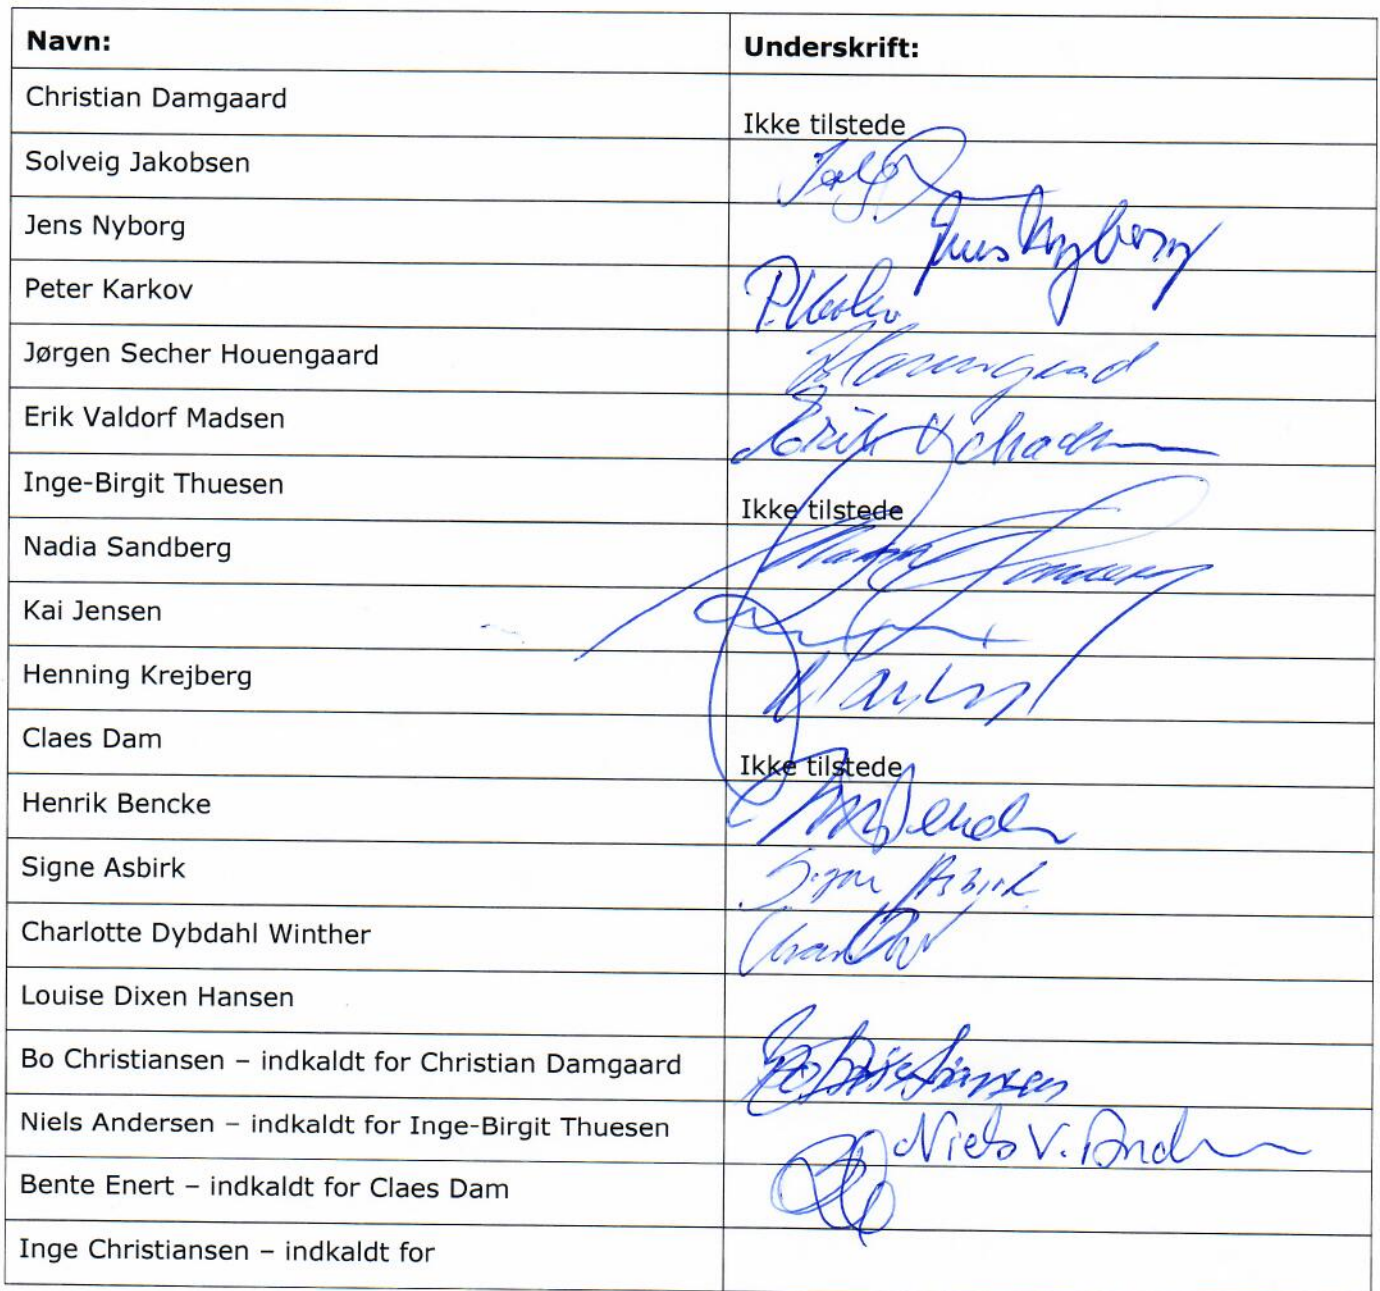 Navn: Underskrift:
Christian Damgaard Ikke tilstede
Solveig Jakobsen
Jens Nyborg Jens Nyborg
Peter Karkov
Jørgen Secher Houengaard
Erik Valdorf Madsen Erik
Inge-Birgit Thuesen Ikke tilstede
Nadia Sandberg
Kai Jensen
Henning Krejberg
Claes Dam Ikke tilstede
Henrik Bencke
Signe Asbirk Signe Asbirk
Charlotte Dybdahl Winther
Louise Dixen Hansen
Bo Christiansen – indkaldt for Christian Damgaard Bo Christiansen
Niels Andersen – indkaldt for Inge-Birgit Thuesen Niels V.
Bente Enert – indkaldt for Claes Dam
Inge Christiansen – indkaldt for